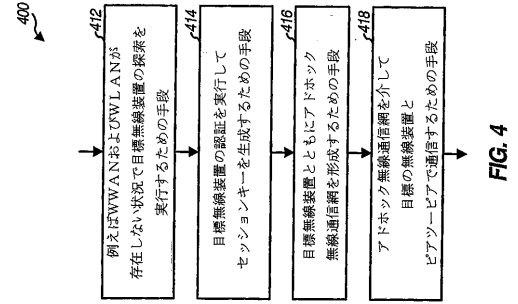 400
412
例えばWWANおよびWLANが
存在しない状況で目標無線装置の探索を
実行するための手段
414
目標無線装置の認証を実行して
セッションキーを生成するための手段
416
目標無線装置とともにアドホック
無線通信網を形成するための手段
418
アドホック無線通信網を介して
目標の無線装置と
ピアツーピアで通信するための手段
FIG. 4